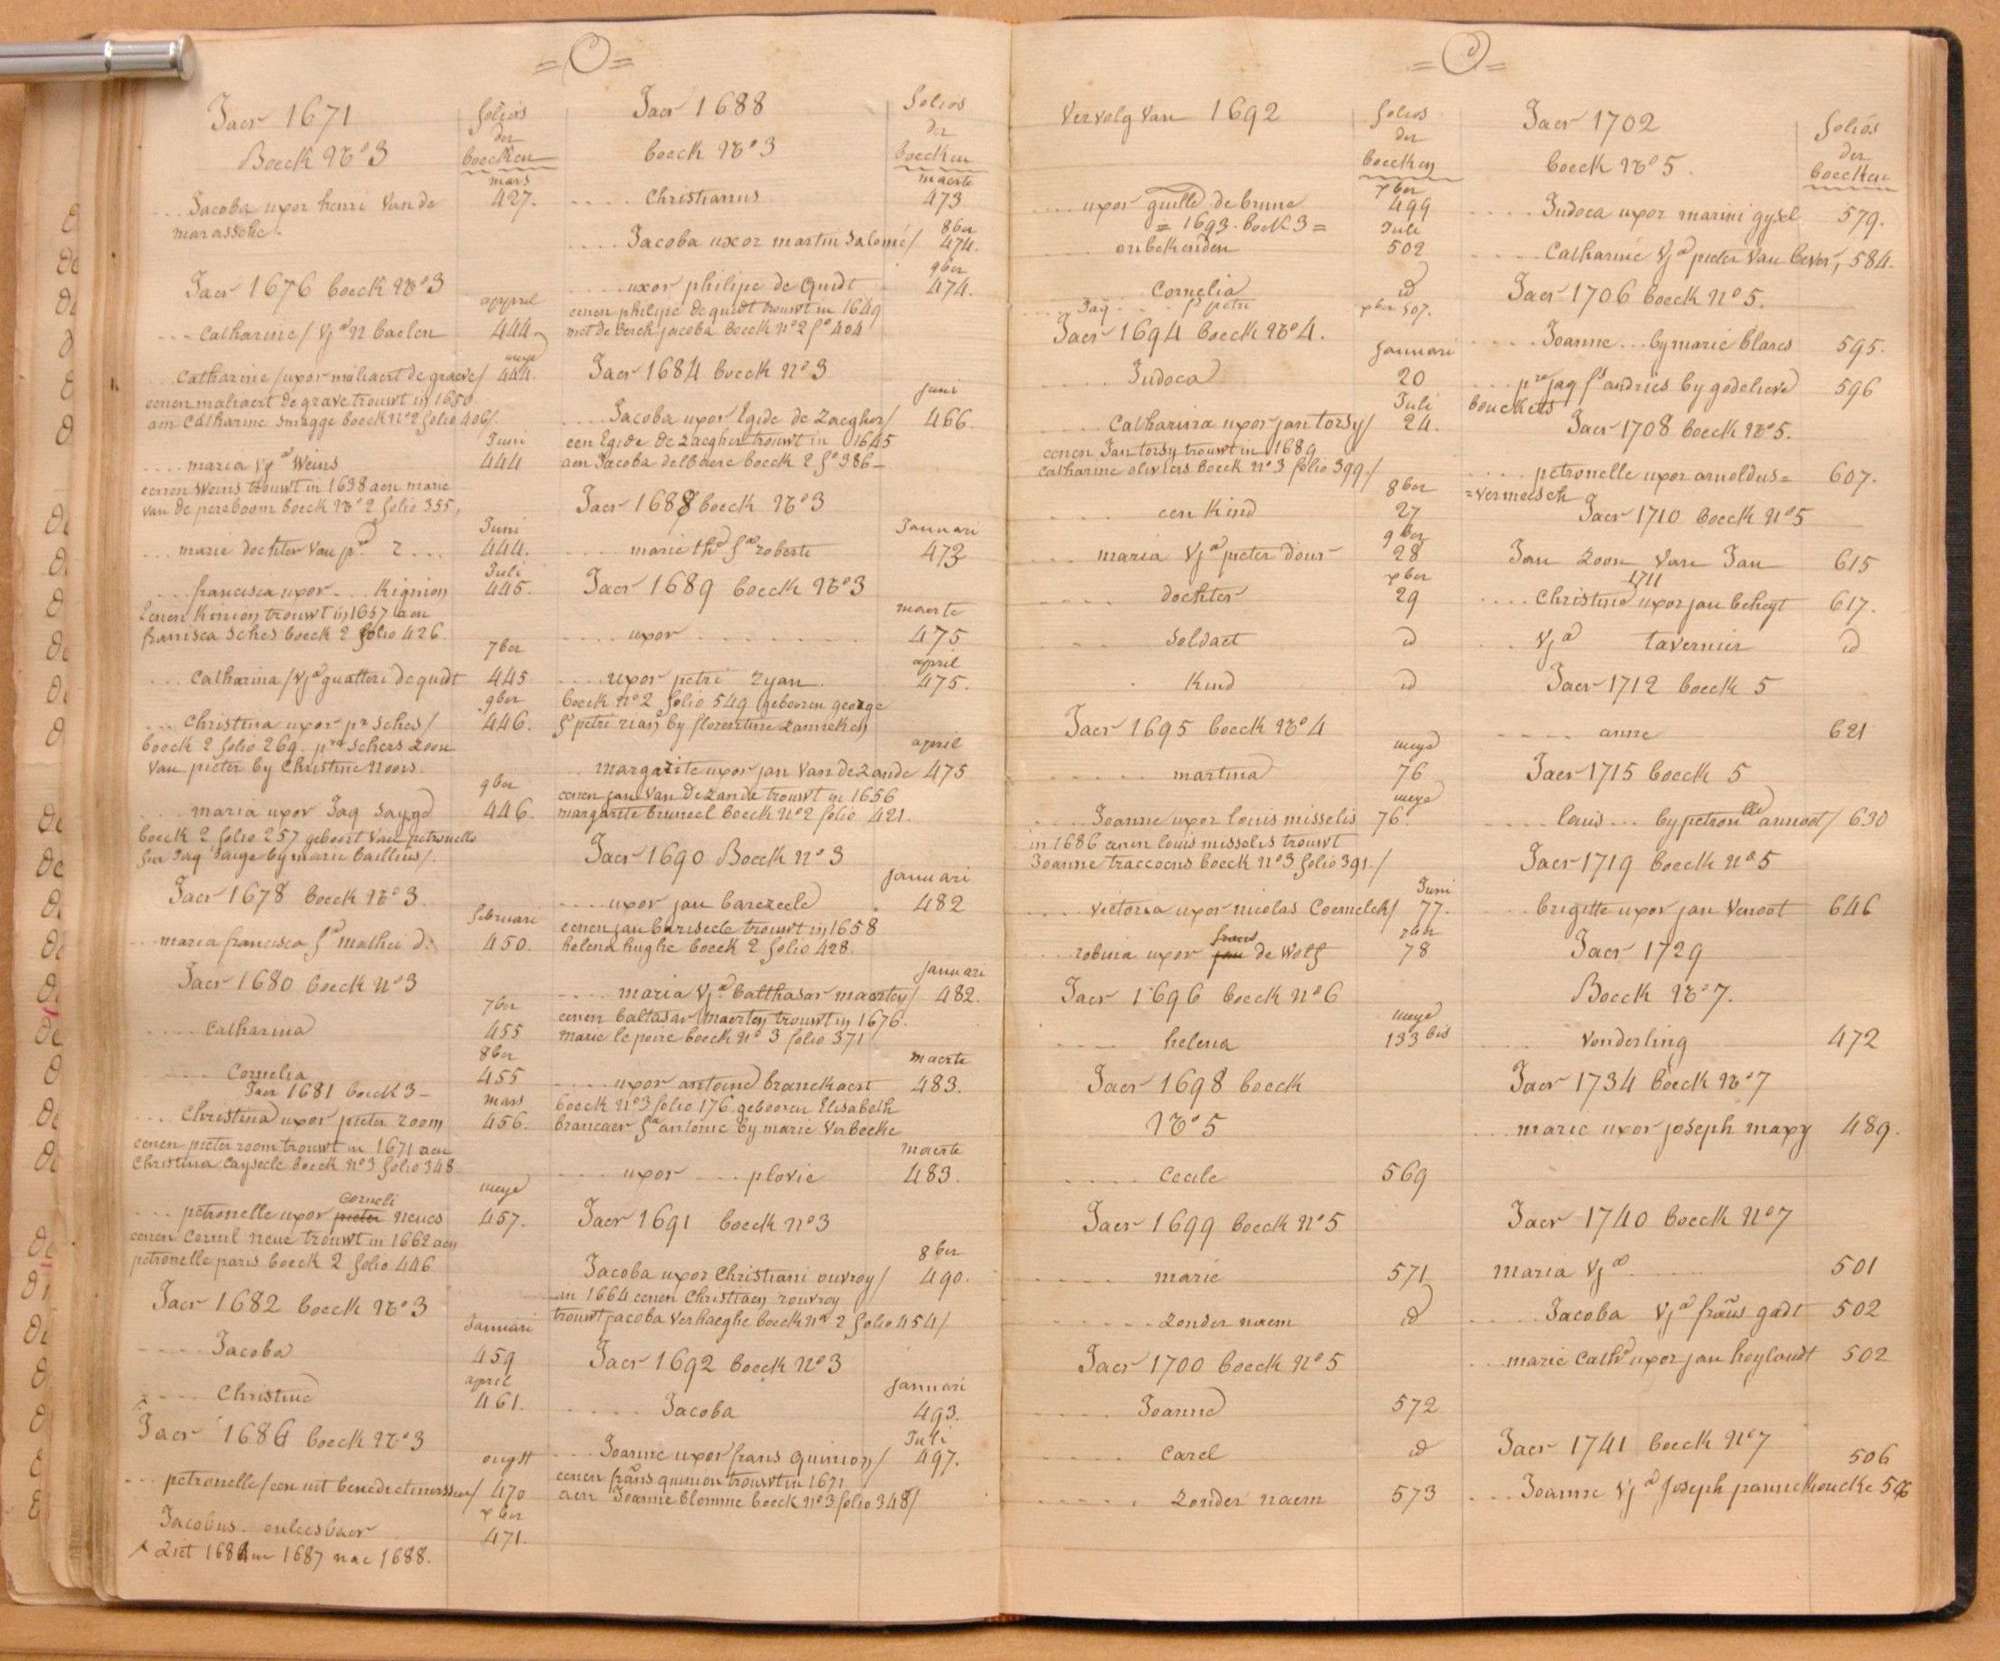 = O =
Jaer 1671
folios
der
boecken
Boeck No 3
mars
.... Jacoba uxor henri Van de 427.
marassche.
Jaer 1676 boeck No 3
appril
... Catharine / Vja N baelen 444
meye
... Catharine / uxor maliaert de graeve / 444.
eenen maliaert de grave trouwt in 1650
aen Catharine smagge boeck No 2 folio 406/.
Juni
.... maria Vja Weins 444
eenen Weins trouwt in 1638 aen marie
van de pereboom boeck No 2 folio 355,
Juni
... marie dochter Van pr 2 ... 444.
Juli
... francisca uxor ... Kignion 445.
eenen Kinion trouwt in 1657 aen
francisca Sches boeck 2 folio 426
7ber
... Catharina / Vja guattere de quidt 445
9ber
... Christina uxor pr Sches / 446.
boeck 2 folio 269. Schers zoon
Van pieter by Christine Noors.
9ber
... maria uxor Jaq Sayge 446.
boeck 2 folio 257 geboort Van petronelle
Jaq Sauge by marie baillius/.
Jaer 1678 boeck No 3.
februari
... maria francisca fa mathei d: 450.
Jaer 1680 boeck No 3
7ber
.... Catharina 455
8ber
.... Cornelia 455
Jaer 1681 boeck 3 -
mars
... Christina uxor pieter room 456.
eenen pieter room trouwt in 1671 aen
Christina Cayseele boeck No 3 folio 348
meye
Corneli
... petronelle uxor pieter neues 457.
eenen Cornil neue trouwt in 1662 aen
petronelle paris boeck 2 folio 446
Jaer 1682 boeck No 3
Januari
.... Jacoba 459
april
.... Christine 461.
Jaer 1686 boeck No 3
ougst
... petronelle / een uit benedictinerssen / 470
xber
Jacobus onleesbaer 471.
Ziet 1684 en 1687 nae 1688.
Jaer 1688
folios
der
boecken
boeck No 3
maerte
.... Christianus 473
8ber
.... Jacoba uxor martin Salomé / 474.
9ber
.... uxor philipe de Quidt 474.
eenen philipe de quidt trouwt in 1649
met de berch jacoba boeck No 2 fo 404
Jaer 1684 boeck No 3
Juni
.... Jacoba uxor Egide de Zaegher / 466.
een Egide de Zaegher trouwt in 1645
aen Jacoba delbaere boeck 2 fo 386 -
Jaer 1687 boeck No 3
Januari
.... marie tha fa roberti 472
Jaer 1689 boeck No 3
maerte
.... uxor .......... 475
april
.... uxor petri Zyan. 475.
boeck No 2 folio 549 gebooren george
fs petri zian by florentine Zannekey
april
.. margarite uxor jan Van de Zande 475
eenen jan Van de Zande trouwt in 1656
margarite bruneel boeck No 2 folio 421.
Jaer 1690 Boeck No 3
Januari
.... uxor jan barezeele 482
eenen jan bariseele trouwt in 1658
helena hughe boeck 2 folio 428.
Januari
.... maria Vja balthasar maerten / 482.
eenen baltasar maerten trouwt in 1676.
marie le poire boeck No 3 folio 371
maerte
.... uxor antoine branckaert 483.
boeck No 3 folio 176 gebooren Elisabeth
brancaer fa antonie by marie Verbecke
maerte
.... uxor .... plovie 483.
Jaer 1691 boeck No 3
8ber
Jacoba uxor Christiani ouvroy / 490.
in 1664 eenen Christiaen rouvroy
trouwt jacoba Verhaeghe boeck No 2 folio 454/
Jaer 1692 boeck No 3
Januari
..... Jacoba 493.
Juli
.... Joanne uxor frans Quinion / 497.
eenen frans quinion trouwt in 1671
aen Joanne blomme boeck No 3 folio 348/
= O =
Vervolg Van 1692
folios
der
boecken
xber
.... uxor guille de brune 499
= 1693. boek 3 =
Juli
.... onbekenden 502
Cornelia id
... Jaq .... fs petri xber 507.
Jaer 1694 boeck No 4.
Januari
.... Judoca 20
Juli
.... Catharina uxor jan torsy / 24.
eenen Jan torsy trouwt in 1689
catharine oliviers boeck No 3 folio 399/
8ber
.... een Kind 27
9ber
.... maria Vja pieter dour 28
xber
.... dochter 29
.... Soldaet id
. Kind id
Jaer 1695 boeck No 4
meye
..... martina 76
meye
.... Joanne uxor louis misselis 76.
in 1686 eenen louis misselis trouwt
Joanne traccoens boeck No 3 folio 391./
Juni
.... Victoria uxor nicolas Coemelck / 77.
frans
... robina uxor jan de Wolf 78
Jaer 1696 boeck No 6
meye
.... helena 133 bis
Jaer 1698 boeck
No 5
..... Cecile 569
Jaer 1699 boeck No 5
.... marie 571
..... Zonder naem id
Jaer 1700 boeck No 5
.... Joanne 572
.... Carel id
..... Zonder naem 573
Jaer 1702
folios
der
boecken
boeck No 5.
.... Judoca uxor marini gysel 579.
.... Catharine Vja pieter Van bever, 584.
Jaer 1706 boeck No 5.
.... Joanne ... by marie blaes 595.
.... jaq fs andries by godelieve 596
bouckets
Jaer 1708 boeck No 5.
.... petronelle uxor arnoldus = 607.
= Vermeesch
Jaer 1710 boeck No 5
Jan Zoon Van Jan 615
1711
.... Christine uxor jan beheyt 617.
... Vja tavernier id
Jaer 1712 boeck 5
..... anne 621
Jaer 1715 boeck 5
.... louis ... by petronlle annoot / 630
Jaer 1719 boeck No 5
.... brigitte uxor jan Venoot 646
Jaer 1729
Boeck No 7.
.... Vonderling 472
Jaer 1734 boeck No 7
... marie uxor joseph mapy 489.
Jaer 1740 boeck No 7
maria Vja ...... 501
.... Jacoba Vja frans gadt 502
... marie Catha uxor jan heylandt 502
Jaer 1741 boeck No 7
506
... Joanne Vja Joseph pannekoucke 506